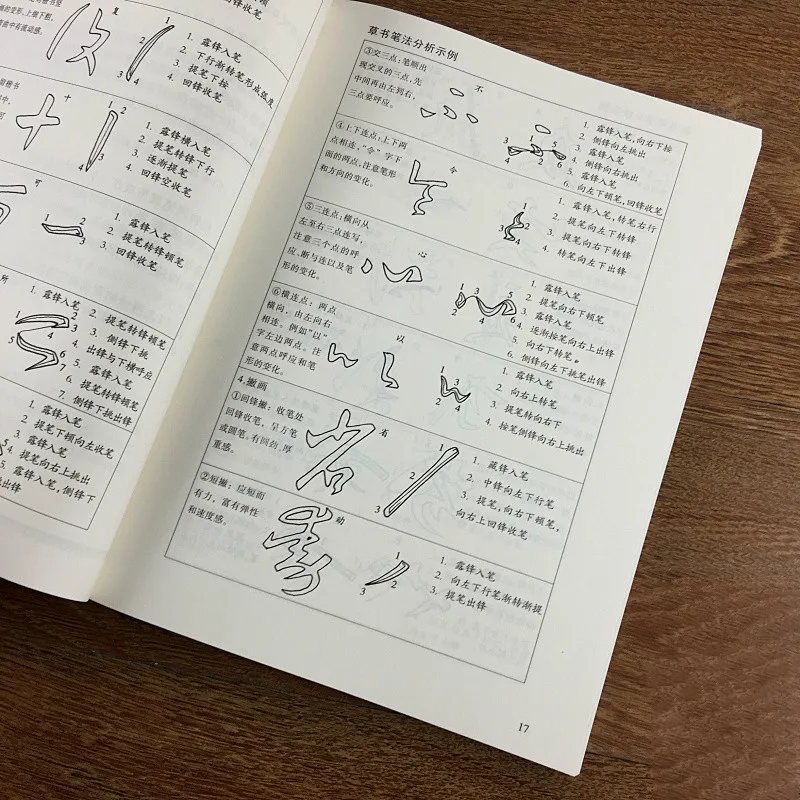 复
1. 露锋入笔
2. 下行渐转笔形成弧度
3. 提笔下按
4. 回锋收笔
十
1. 露锋横入笔
2. 提笔转锋下行
3. 逐渐提笔
4. 回锋空收笔
可
1. 露锋入笔
2. 提笔转锋顿笔
3. 回锋收笔
所
1. 露锋入笔
2. 提笔转锋顿笔
3. 侧锋下挑
4. 出锋与下横呼应
5. 露锋入笔
6. 提笔转锋顿笔
7. 侧锋下挑出锋
1. 露锋入笔
2. 提笔下顿向左收笔
3. 露锋入笔
4. 提笔向右上挑出
5. 露锋入笔,侧锋下
挑出锋
草书笔法分析示例
③交三点:笔顺出
现交叉的三点,先
中间再由左到右,
三点要呼应。
不
1. 露锋入笔,向右下按
2. 侧锋向左挑出
3. 露锋入笔
4. 侧锋向右挑出
5. 露锋入笔
6. 向左下顿笔,回锋收笔
④上下连点:上下两
点相连,“令”字下
面的两点,注意笔形
和方向的变化。
令
1. 露锋入笔,转笔右行
2. 提笔向左下转锋
3. 提笔向右下转锋
4. 转笔向左下出锋
⑤三连点:横向从
左至右三点连写,
注意三个点的呼
应,断与连以及笔
形的变化。
心
1. 露锋入笔
2. 提笔向右下顿笔
3. 露锋入笔
4. 逐渐按笔向右上出锋
5. 向右下转笔。
6. 侧锋向左下挑笔出锋
⑥横连点:两点
横向,由左向右
相连。例如“以”
字左边两点。注
意两点呼应和笔
形的变化。
以
1. 露锋入笔
2. 向右上转笔
3. 提笔转锋向右下
4. 按笔侧锋向右上挑出
4.撇画
①回锋撇:收笔处
回锋收笔,呈方笔
或圆笔。有回劲、厚
重感。
省
1. 藏锋入笔
2. 中锋向左下行笔
3. 提笔,向右下顿笔,
向右上回锋收笔
②短撇:应短而
有力,富有弹性
和速度感。
幼
1. 露锋入笔
2. 向左下行笔渐转渐提
3. 提笔出锋
17